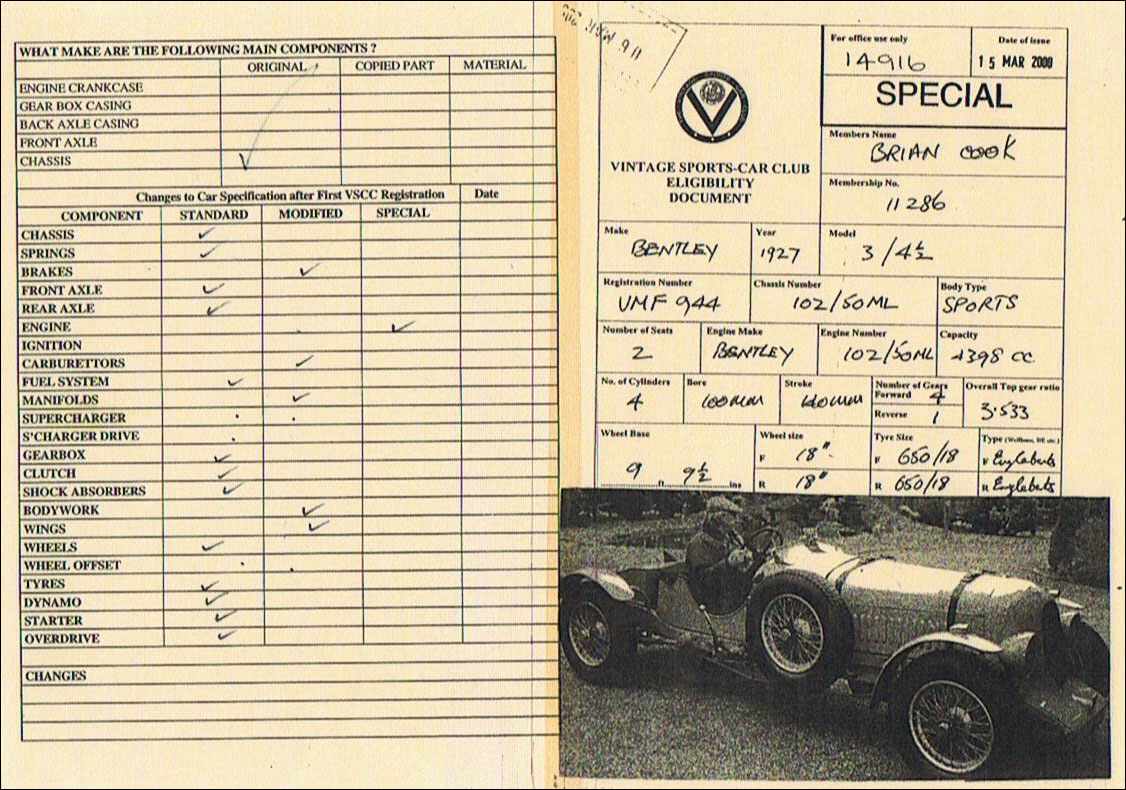 WHAT MAKE ARE THE FOLLOWING MAIN COMPONENTS ?
ORIGINAL COPIED PART MATERIAL
ENGINE CRANKCASE
GEAR BOX CASING
BACK AXLE CASING
FRONT AXLE
CHASSIS ✓
Changes to Car Specification after First VSCC Registration Date
COMPONENT STANDARD MODIFIED SPECIAL
CHASSIS ✓
SPRINGS ✓
BRAKES ✓
FRONT AXLE ✓
REAR AXLE ✓
ENGINE ✓
IGNITION
CARBURETTORS ✓
FUEL SYSTEM ✓
MANIFOLDS ✓
SUPERCHARGER
S'CHARGER DRIVE
GEARBOX ✓
CLUTCH ✓
SHOCK ABSORBERS ✓
BODYWORK ✓
WINGS ✓
WHEELS ✓
WHEEL OFFSET
TYRES ✓
DYNAMO ✓
STARTER ✓
OVERDRIVE ✓
CHANGES
VINTAGE SPORTS-CAR CLUB
ELIGIBILITY
DOCUMENT
For office use only
14916
Date of issue
15 MAR 2000
SPECIAL
Members Name
BRIAN COOK
Membership No.
11286
Make
BENTLEY
Year
1927
Model
3/4½
Registration Number
UMF 944
Chassis Number
102/50ML
Body Type
SPORTS
Number of Seats
2
Engine Make
BENTLEY
Engine Number
102/50ML
Capacity
4398 CC
No. of Cylinders
4
Bore
100mm
Stroke
140mm
Number of Gears
Forward 4
Reverse 1
Overall Top gear ratio
3.533
Wheel Base
9 ft 9½ ins
Wheel size
F 18"
R 18"
Tyre Size
F 650/18
R 650/18
F Engleberts
R Engleberts